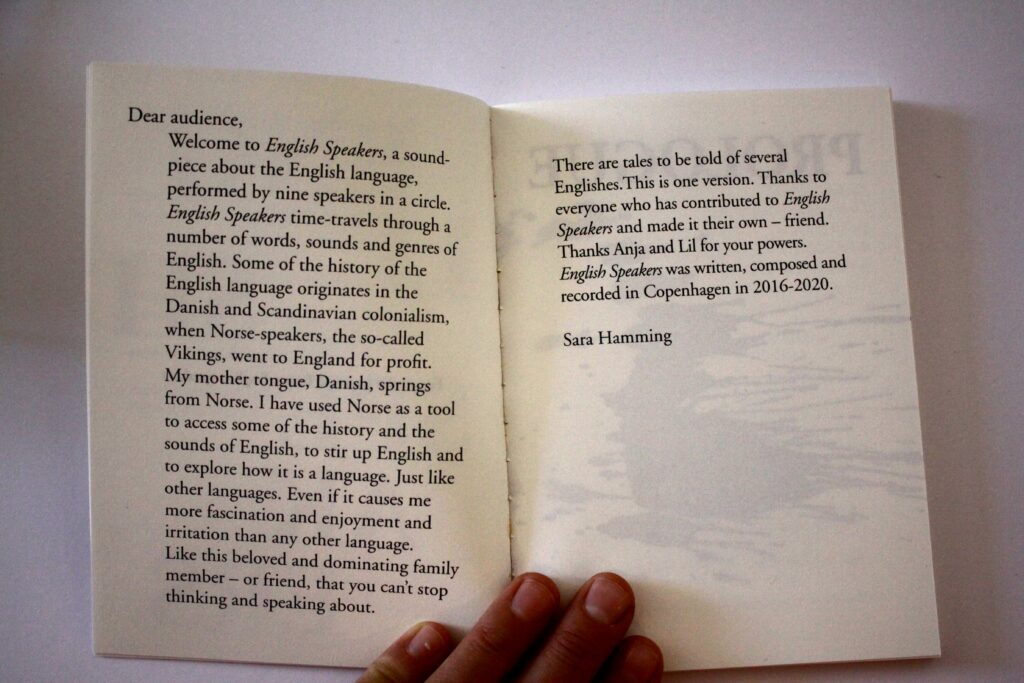 Dear audience,
Welcome to English Speakers, a sound-
piece about the English language,
performed by nine speakers in a circle.
English Speakers time-travels through a
number of words, sounds and genres of
English. Some of the history of the
English language originates in the
Danish and Scandinavian colonialism,
when Norse-speakers, the so-called
Vikings, went to England for profit.
My mother tongue, Danish, springs
from Norse. I have used Norse as a tool
to access some of the history and the
sounds of English, to stir up English and
to explore how it is a language. Just like
other languages. Even if it causes me
more fascination and enjoyment and
irritation than any other language.
Like this beloved and dominating family
member – or friend, that you can't stop
thinking and speaking about.
There are tales to be told of several
Englishes.This is one version. Thanks to
everyone who has contributed to English
Speakers and made it their own – friend.
Thanks Anja and Lil for your powers.
English Speakers was written, composed and
recorded in Copenhagen in 2016-2020.
Sara Hamming
PROLOGUE